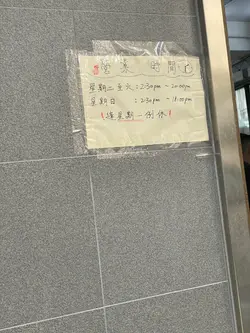 營業時間
星期二至六：2:30pm ~ 20:00pm
星期日：2:30pm ~ 18:00pm
(逢星期一例休)